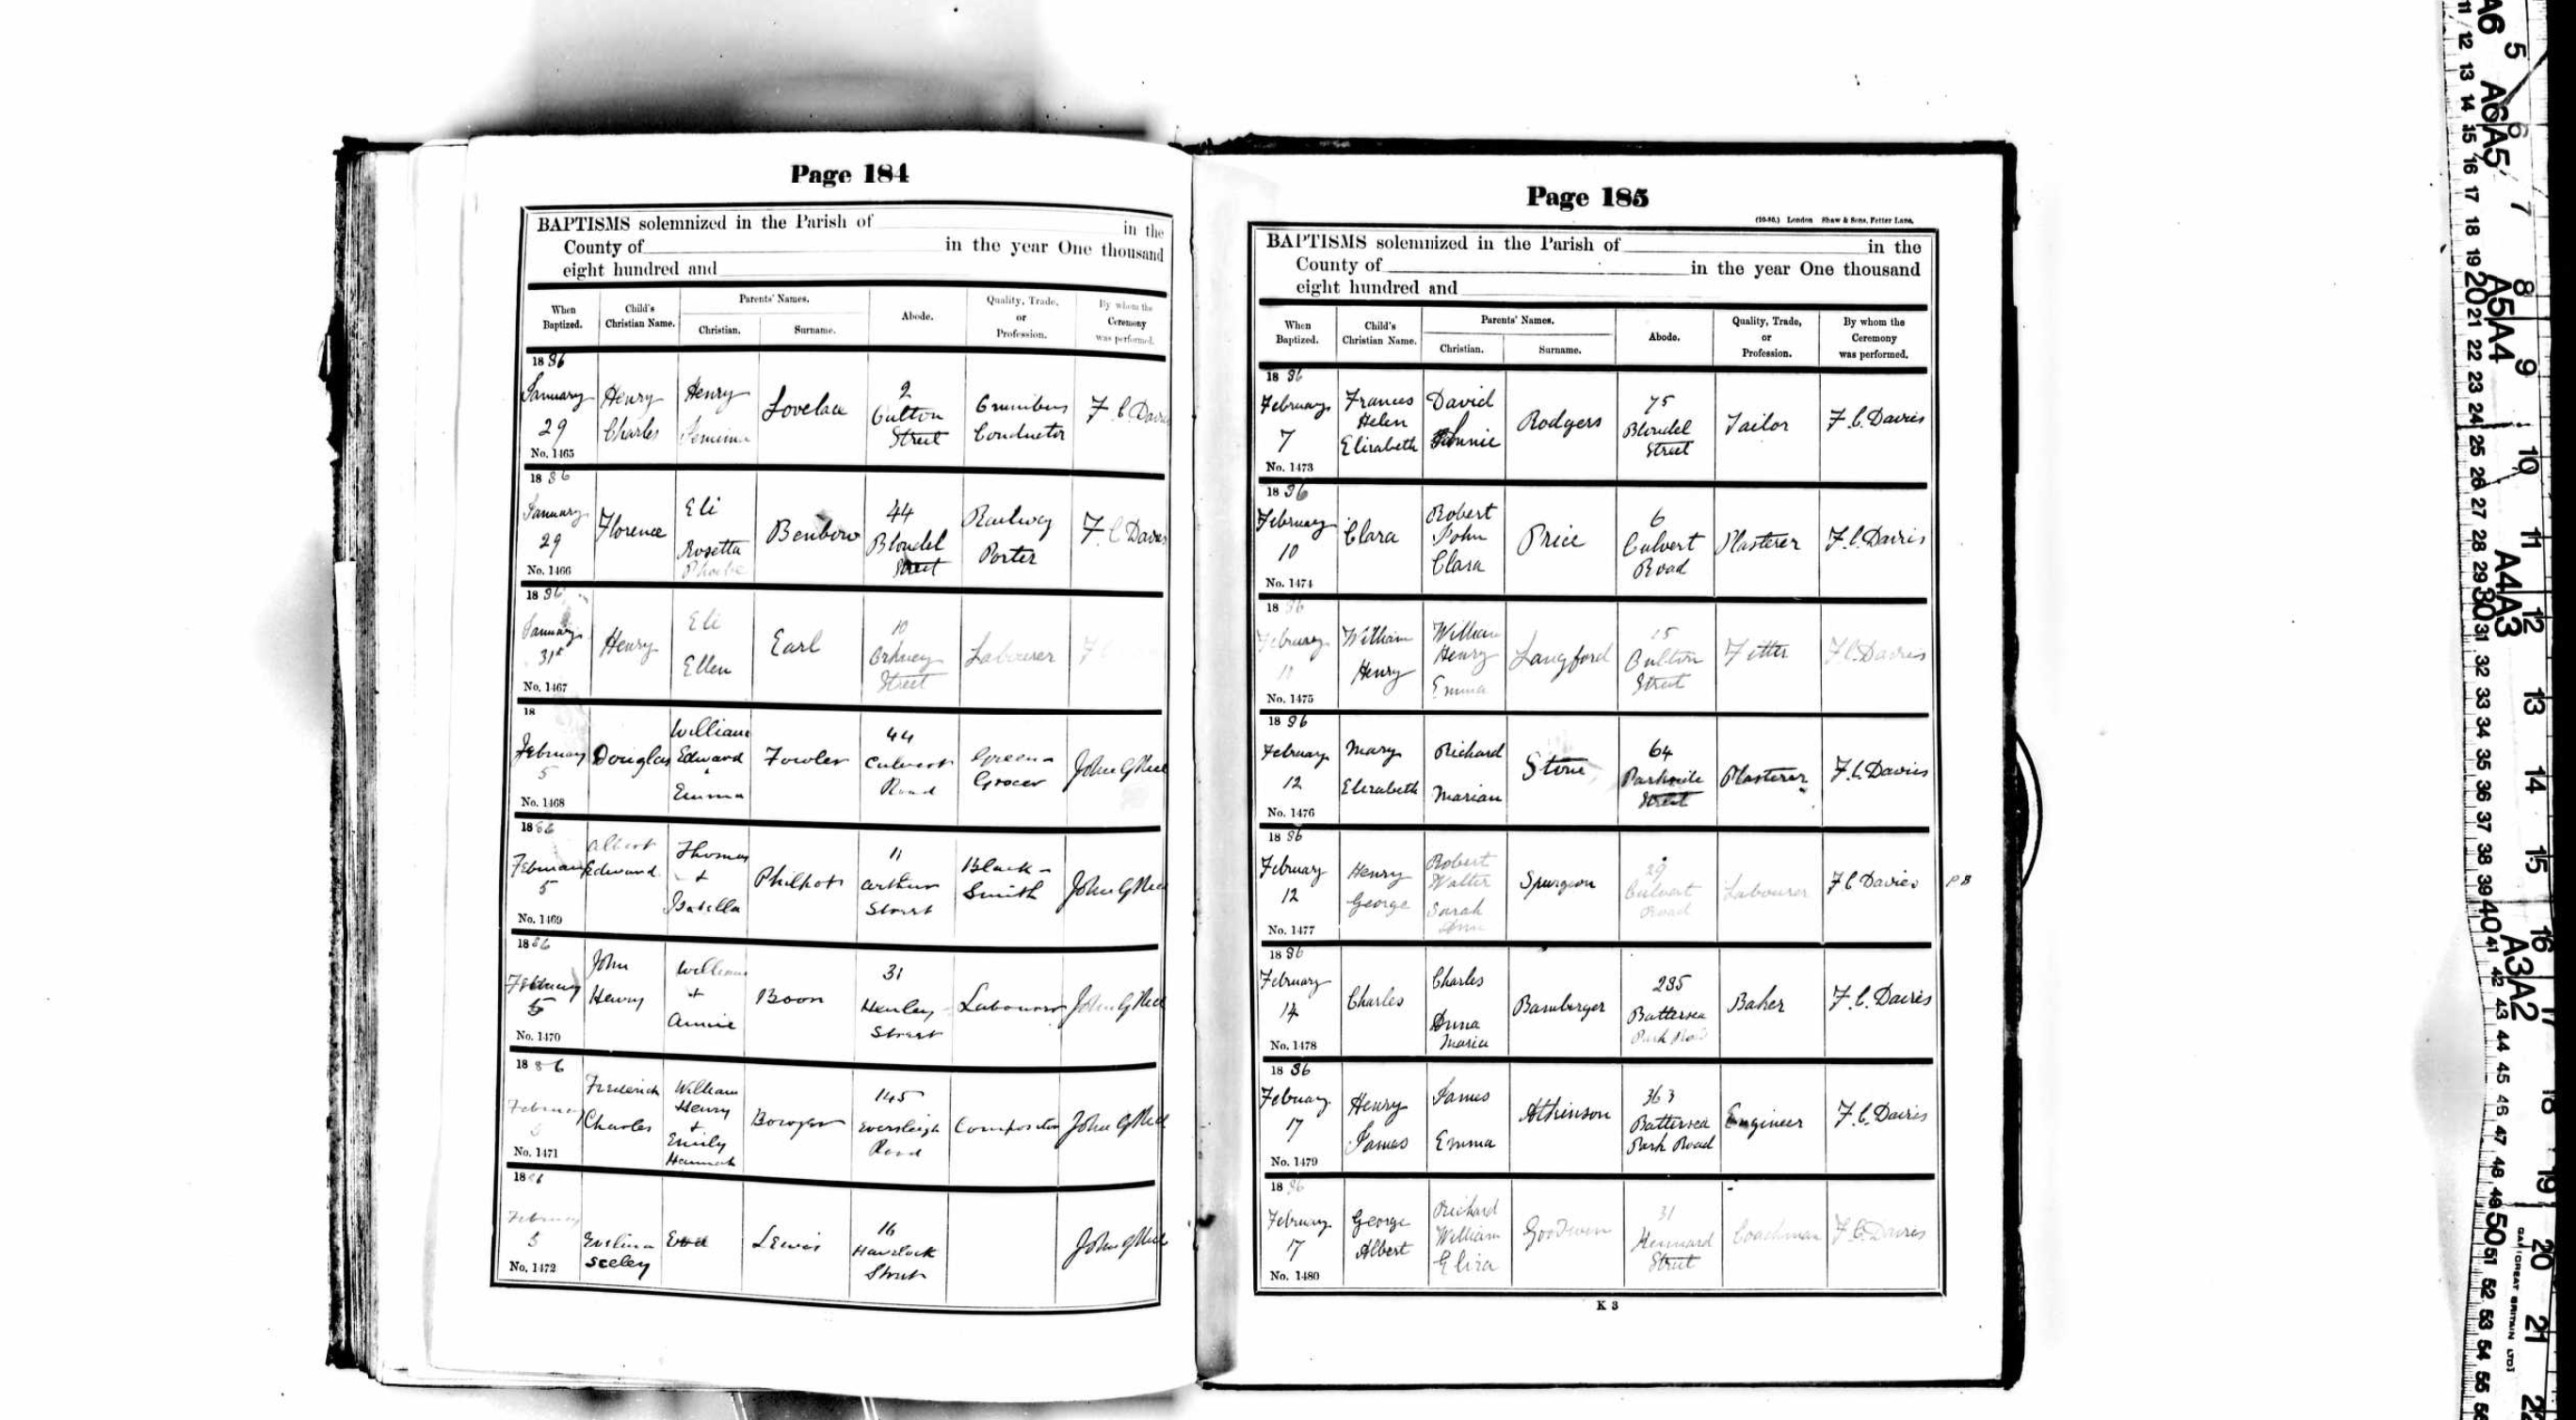 Page 184
BAPTISMS solemnized in the Parish of in the
County of in the year One thousand
eight hundred and
When Baptized.
Child's Christian Name.
Parents' Names.
Christian.
Surname.
Abode.
Quality, Trade, or Profession.
By whom the Ceremony was performed.
1886
January 29
No. 1465
Henry Charles
Henry Jemima
Lovelace
2 Culton Street
Omnibus Conductor
F. C. Davies
1886
January 29
No. 1466
Florence
Eli Rosetta Phoebe
Benbow
44 Blondel Street
Railway Porter
F. C. Davies
1886
January 31st
No. 1467
Henry
Eli Ellen
Earl
10 Orkney Street
Labourer
F C
18
February 5
No. 1468
Douglas
William Edward & Emma
Fowler
44 Culvert Road
Green-Grocer
John G
1886
February 5
No. 1469
Albert Edward
Thomas & Isabella
Philpot
11 Arthur Street
Black-Smith
John G
1886
February 5
No. 1470
John Henry
William & Annie
Boon
31 Henley Street
Labourer
John G
1886
February
No. 1471
Frederick Charles
William Henry & Emily Hannah
Bowyer
145 Eversleigh Road
Compositor
John G
1886
February 5
No. 1472
Evelina Seeley
Lewis
16 Havelock Street
John G
Page 185
(10-80.) London Shaw & Sons, Fetter Lane.
BAPTISMS solemnized in the Parish of in the
County of in the year One thousand
eight hundred and
When Baptized.
Child's Christian Name.
Parents' Names.
Christian.
Surname.
Abode.
Quality, Trade, or Profession.
By whom the Ceremony was performed.
1886
February 7
No. 1473
Frances Helen Elizabeth
David
Rodgers
75 Blondel Street
Tailor
F. C. Davies
1886
February 10
No. 1474
Clara
Robert John Clara
Price
6 Culvert Road
Plasterer
F. C. Davies
1886
February 11
No. 1475
William Henry
William Henry Emma
Langford
15 Street
Fitter
F. C. Davies
1886
February 12
No. 1476
Mary Elizabeth
Richard Marian
Stone
64 Parkside Street
Plasterer
F. C. Davies
1886
February 12
No. 1477
Henry George
Robert Walter Sarah Ann
Spurgeon
29 Culvert Road
Labourer
F C Davies
P B
1886
February 14
No. 1478
Charles
Charles Anna Maria
Bamberger
235 Battersea Park Road
Baker
F. C. Davies
1886
February 17
No. 1479
Henry James
James Emma
Atkinson
363 Battersea Park Road
Engineer
F. C. Davies
1886
February 17
No. 1480
George Albert
Richard William Eliza
Goodwin
31 Kennard Street
Coachman
F. C. Davies
K 3